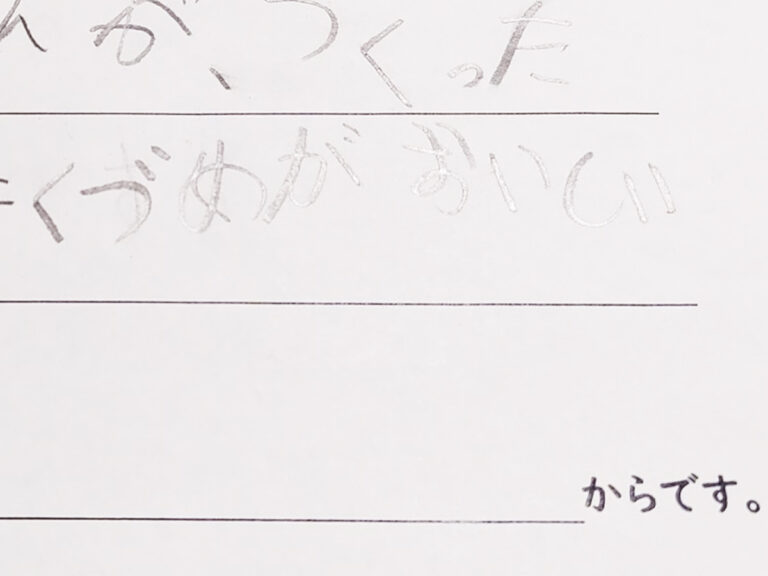 んが、つくった
くづめがおいしい
からです。